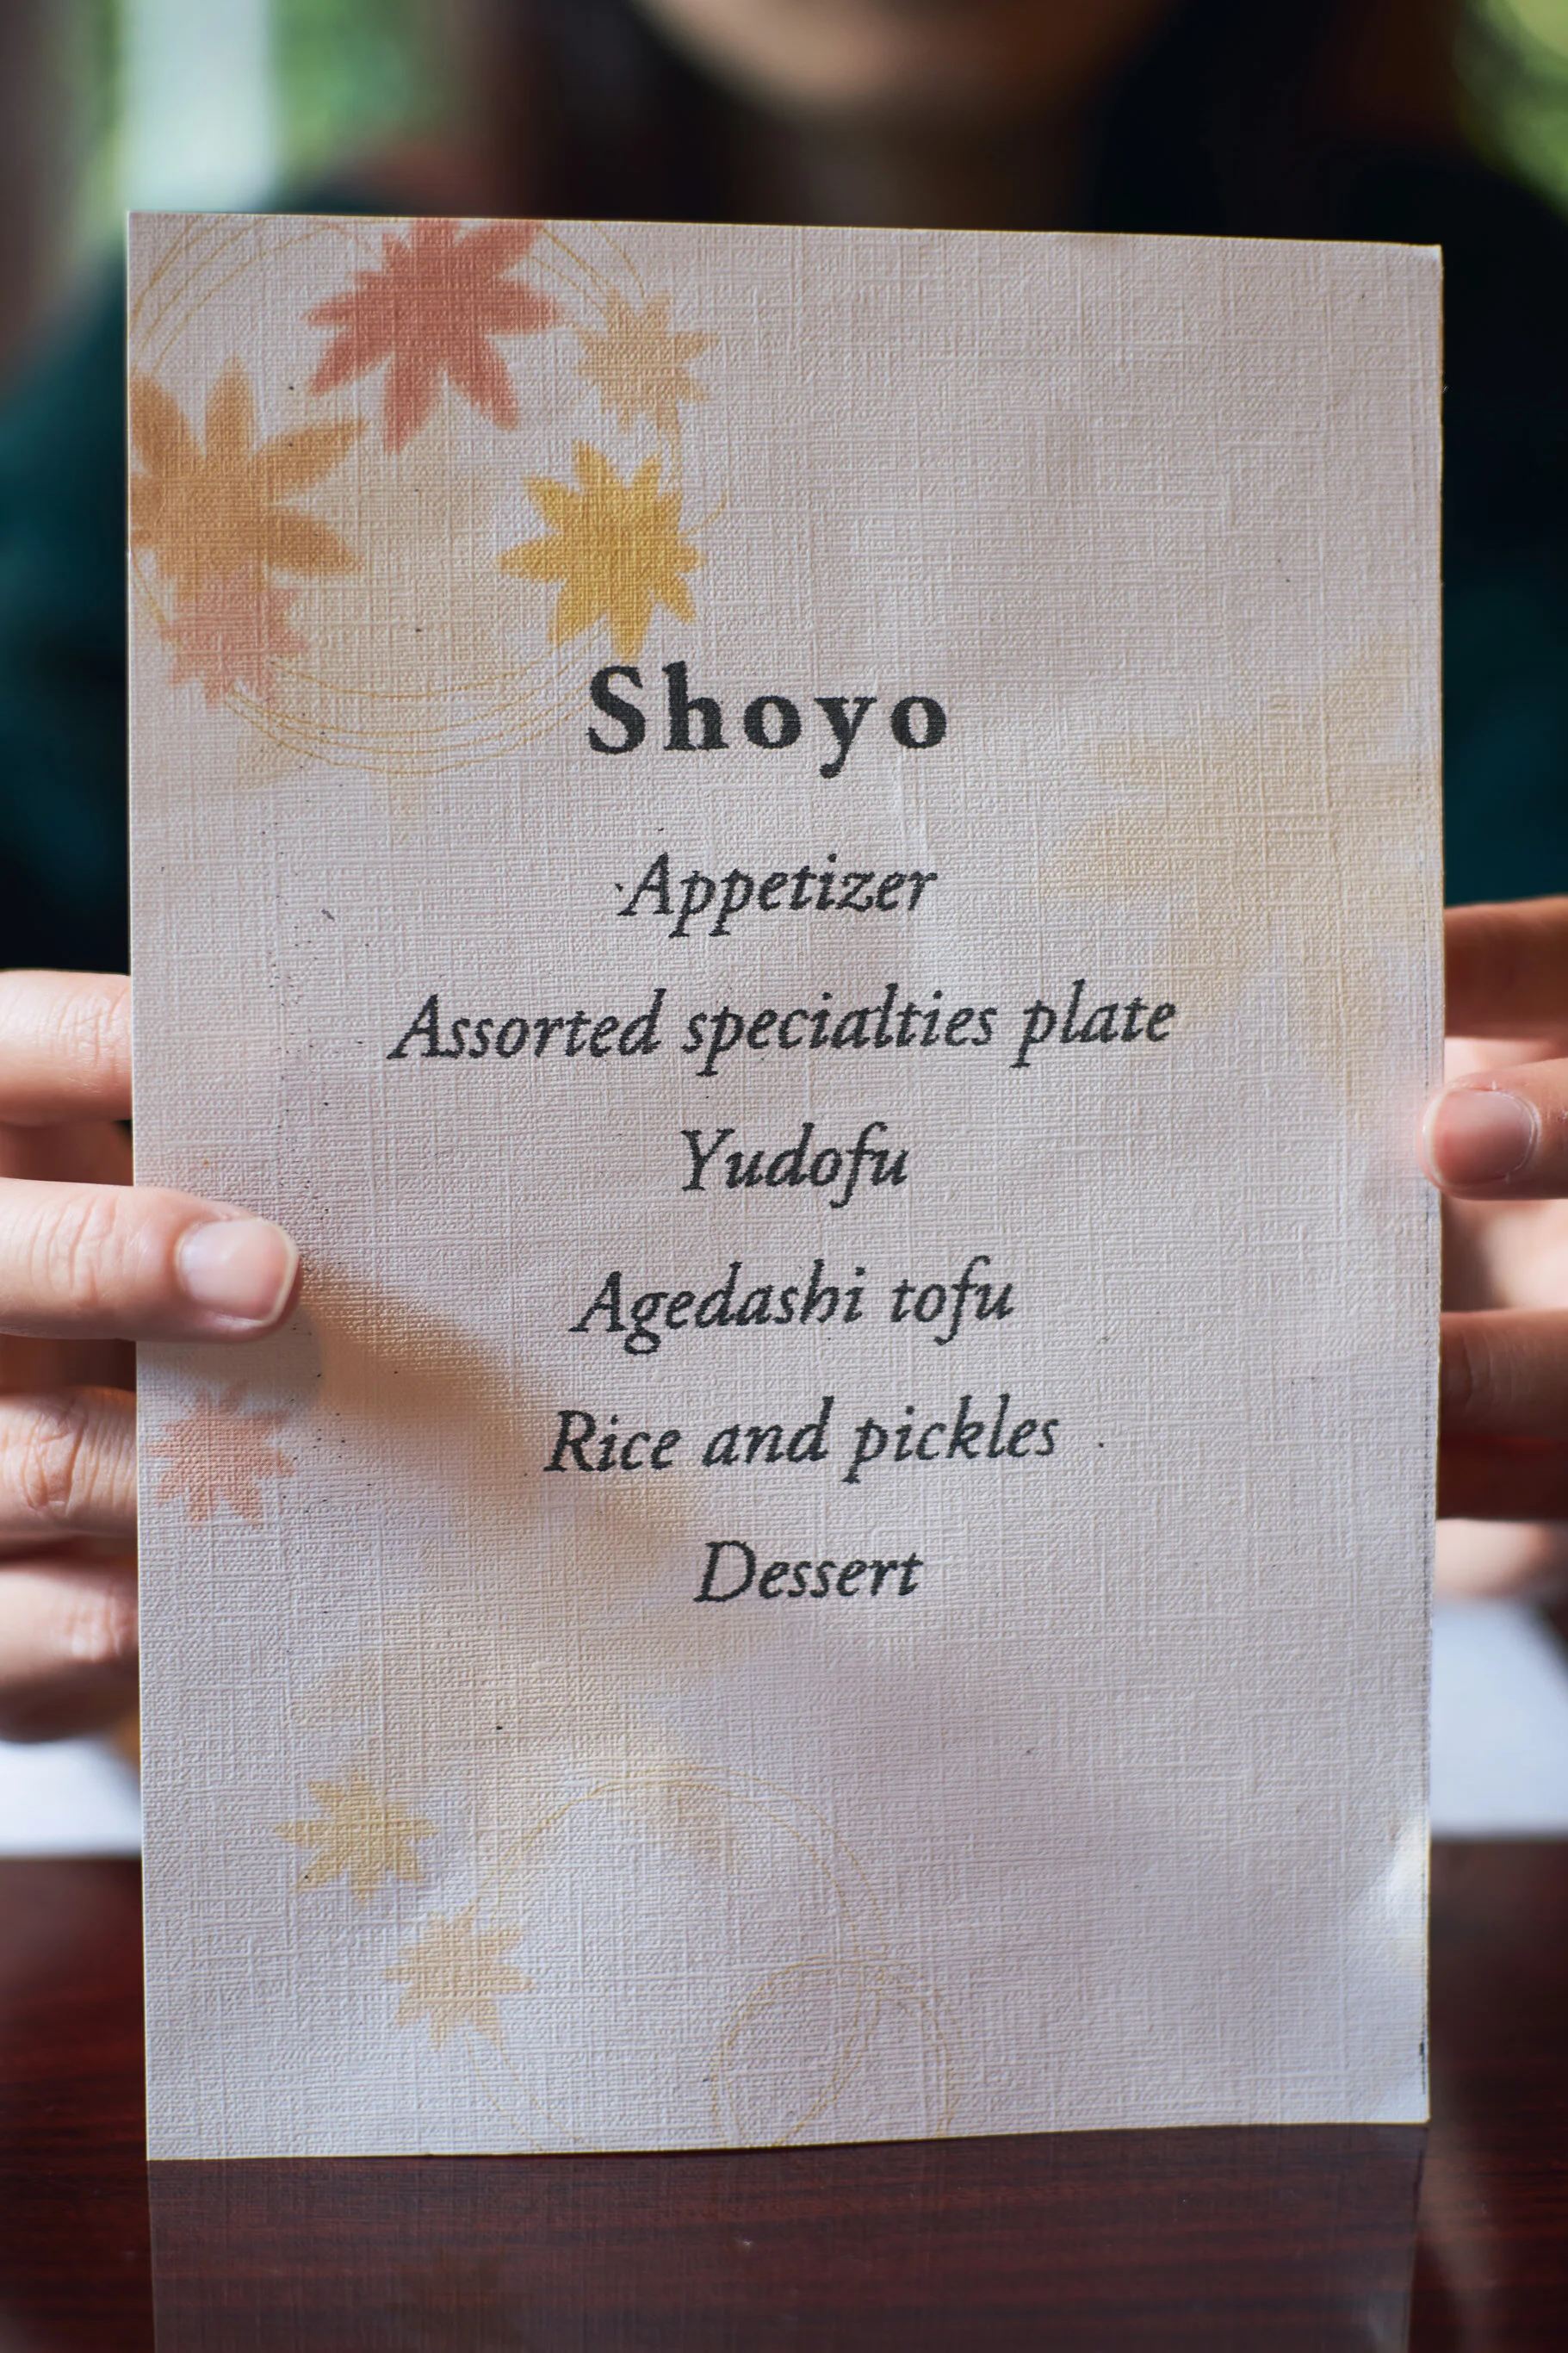 Shoyo
Appetizer
Assorted specialties plate
Yudofu
Agedashi tofu
Rice and pickles
Dessert